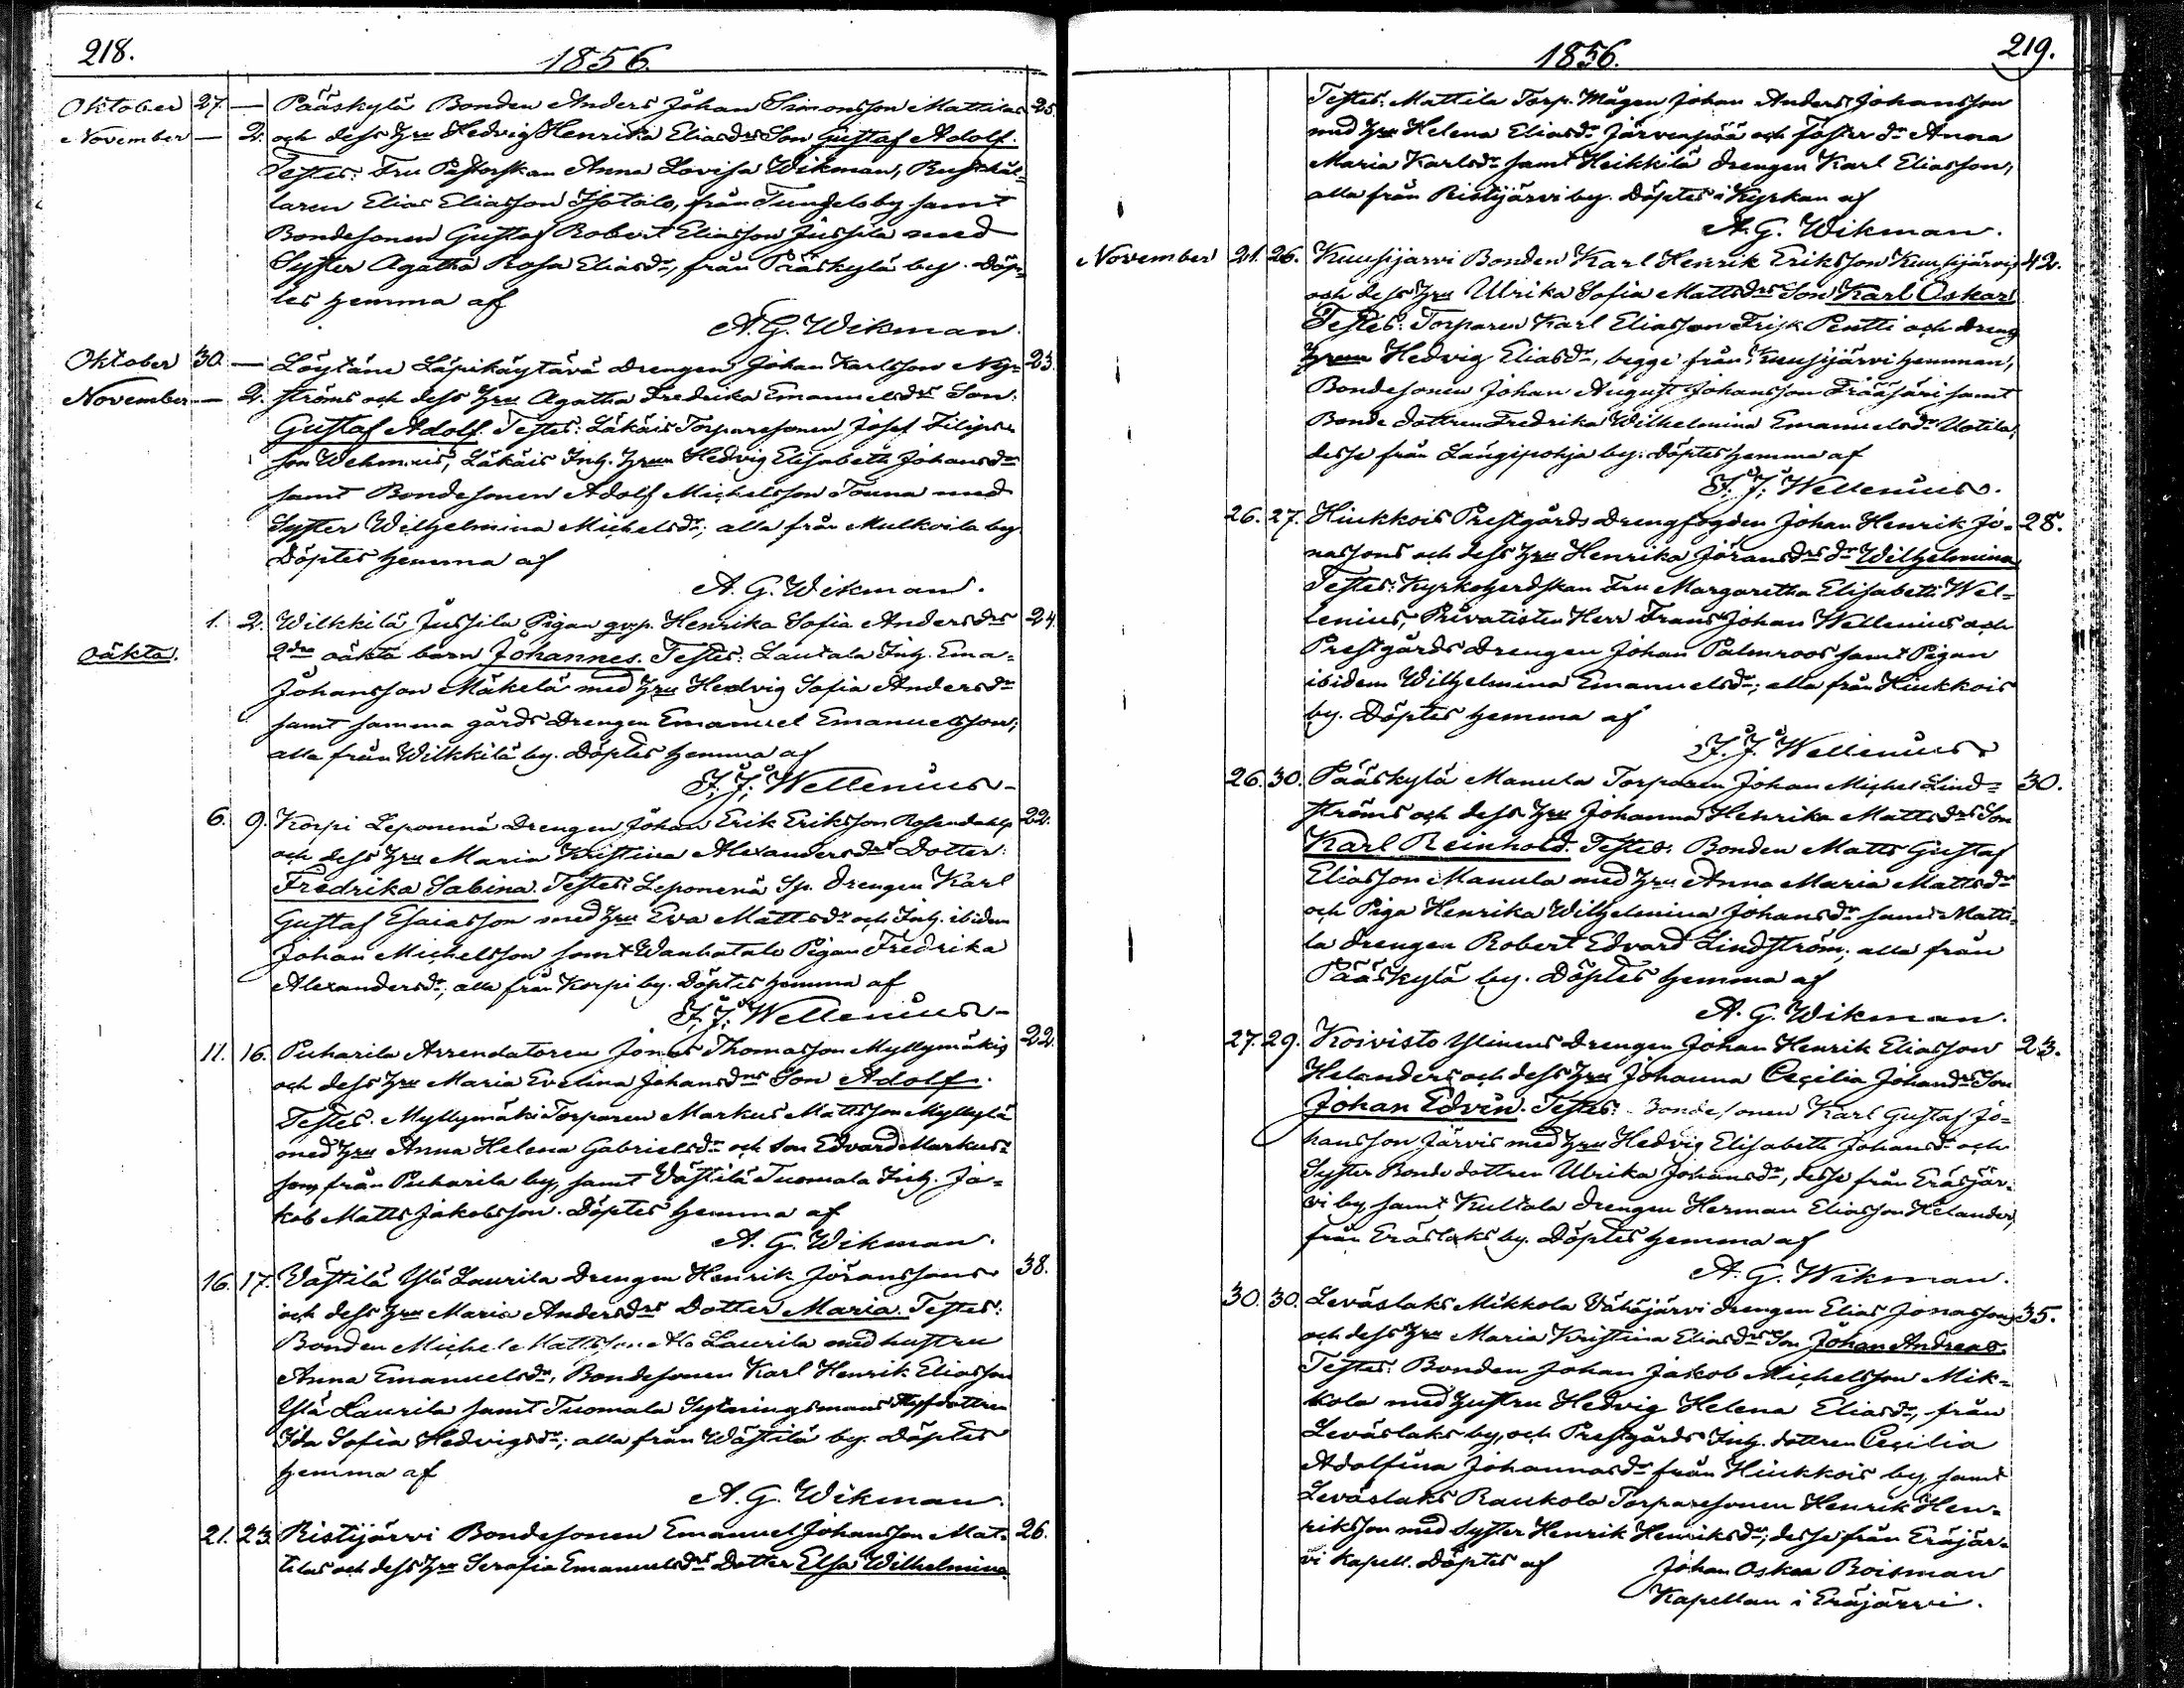 218.
1856.
Oktober 27. — Pääskylä Bonden Anders Johan Simonsson Mattilas 25.
November — 2. och dess Hru Hedvig Henrika Eliasdrs Son Gustaf Adolf.
Testes: Fru Pastorskan Anna Lovisa Wikman, Rusthål-
laren Elias Eliasson Isotalo, från Tungelo by samt
Bondesonen Gustaf Robert Eliasson Jussila med
Syster Agatha Rosa Eliasdr, från Pääskylä by. Döp-
tes hemma af
A. G. Wikman.
Oktober 30. — Löytäne Läpikäytävä drengen Johan Karlsson Ny- 23.
November — 2. ströms och dess Hru Agatha Fredrika Emanuelsdrs Son.
Gustaf Adolf. Testes: Läkäis Torparesonen Josef Filips-
son Wehmais, Läkäis Inh. Hrun Hedvig Elisabeth Johansdr
samt Bondesonen Adolf Michelsson Touna med
Syster Wilhelmina Michelsdr; alla från Mulkoila by.
Döptes hemma af
A. G. Wikman.
1. 2. Wilkkilä Jussila Pigan qvp. Henrika Sofia Andersdrs 24.
oäkta. 2dra oäkta barn Johannes. Testes: Lautala Inh. Ema-
Johansson Mäkelä med Hru Hedvig Sofia Andersdr
samt samma gårds Drengen Emanuel Emanuelsson;
alla från Wilkkilä by. Döptes hemma af
F. J. Wellenius
6. 9. Korpi Leponenä Drengen Johan Erik Eriksson Rosendahls 22.
och dess Hru Maria Kristina Alexandersdrs Dotter:
Fredrika Sabina. Testes: Leponenä Sp. drengen Karl
Gustaf Esaiasson med Hru Eva Mattsdr och Inh. ibidem
Johan Michelsson samt Wanhatalo Pigan Fredrika
Alexandersdr; alla från Korpi by. Döptes hemma af
F. J. Wellenius
11. 16. Puharila Arrendatoren Jonas Thomasson Myllymäkis 22.
och dess Hru Maria Evelina Johansdrs Son Adolf.
Testes. Myllymäki Torparen Markus Mattsson Myllylä
med Hru Anna Helena Gabrielsdr och Son Edvard Markus-
son, från Puharila by, samt Västilä Tuomala Inh. Ja-
kob Matts Jakobsson. Döptes hemma af
A. G. Wikman.
16. 17. Västilä Ylä Laurila Drengen Henrik Jöranssons 38.
och dess Hru Maria Andersdrs Dotter Maria. Testes:
Bonden Michel Mattsson Ala Laurila med hustru
Anna Emanuelsdr, Bondesonen Karl Henrik Eliasson
Ylä Laurila samt Tuomala Sytningsmans Styfdottren
Ida Sofia Hedvigsdr; alla från Wästilä by. Döptes
hemma af
A. G. Wikman.
21. 23. Ristijärvi Bondesonen Emanuel Johansson Mat- 26.
tilas och dess Hru Serafia Emanuelsdrs Dotter Elsa Wilhelmina.
1856.
219.
Testes: Mattila Torp. Mågen Johan Anders Johansson
med Hru Helena Eliasdr Järvenpää och Foster dr Anna
Maria Karlsdr samt Heikkilä drengen Karl Eliasson,
alla från Ristijärvi by. Döptes i Kyrkan af
A. G. Wikman.
November 21. 26. Kuusijärvi Bonden Karl Henrik Eriksson Kuusijärvis 42.
och dess Hru Ulrika Sofia Mattsdrs Son Karl Oskar
Testes: Torparen Karl Eliasson Frisk Pentti och dreng
Hrun Hedvig Eliasdr, begge från Kuusijärvi hemman,
Bondesonen Johan August Johansson Frääsäri samt
Bonde dottren Fredrika Wilhelmina Emanuelsdr Uotila,
desse från Längipohja by. Döptes hemma af
F. J. Wellenius.
26. 27. Hiukkois Prestgårds drengfogden Johan Henrik Jo- 28.
nassons och dess Hru Henrika Jöransdrs dr Wilhelmina
Testes: Kyrkoherdskan Fru Margaretha Elisabeth Wel-
lenius, Privatisten Herr Frans Johan Wellenius och
Prestgårds drengen Johan Palmroos samt Pigan
ibidem Wilhelmina Emanuelsdr; alla från Hiukkois
by. Döptes hemma af
F. J. Wellenius
26. 30. Pääskylä Manula Torparen Johan Michel Lind- 30.
ströms och dess Hru Johanna Henrika Mattsdrs Son
Karl Reinhold. Testes. Bonden Matts Gustaf
Eliasson Manula med Hru Anna Maria Mattsdr
och Piga Henrika Wilhelmina Johansdr samt Matti-
la drengen Robert Edvard Lindström; alla från
Pääskylä by. Döptes hemma af
A. G. Wikman.
27. 29. Koivisto Ylinens drengen Johan Henrik Eliasson 23.
Helanders och dess Hru Johanna Cecilia Johansdrs Son
Johan Edvin. Testes: Bondesonen Karl Gustaf Jo-
hansson Järvis med Hru Hedvig Elisabeth Johansdr och
Syster Bonde dottren Ulrika Johansdr, desse från Eräsjär-
vi by, samt Kultala drengen Herman Eliasson Helander,
från Eräslaks by. Döptes hemma af
A. G. Wikman.
30. 30. Leväslaks Mikkola Vähäjärvi drengen Elias Jonassons 35.
och dess Hru Maria Kristina Eliasdrs Son Johan Andreas.
Testes: Bonden Johan Jakob Michelsson Mik-
kola med Hustru Hedvig Helena Eliasdr, från
Leväslaks by, och Prestgårds Inh. dottren Cecilia
Adolfina Johannasdr från Hiukkois by, samt
Leväslaks Raukola Torparesonen Henrik Hen-
riksson med Syster Henrik Henriksdr; desse från Eräjär-
vi Kapell. Döptes af Johan Oskar Roisman
Kapellan i Eräjärvi.